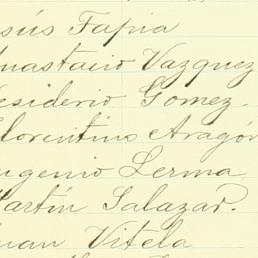 esús Tapia
nastacio Vazquez
esiderio Gomez.
lorentino Aragón
ugenio Lerma
artín Salazar.
uan Vitela